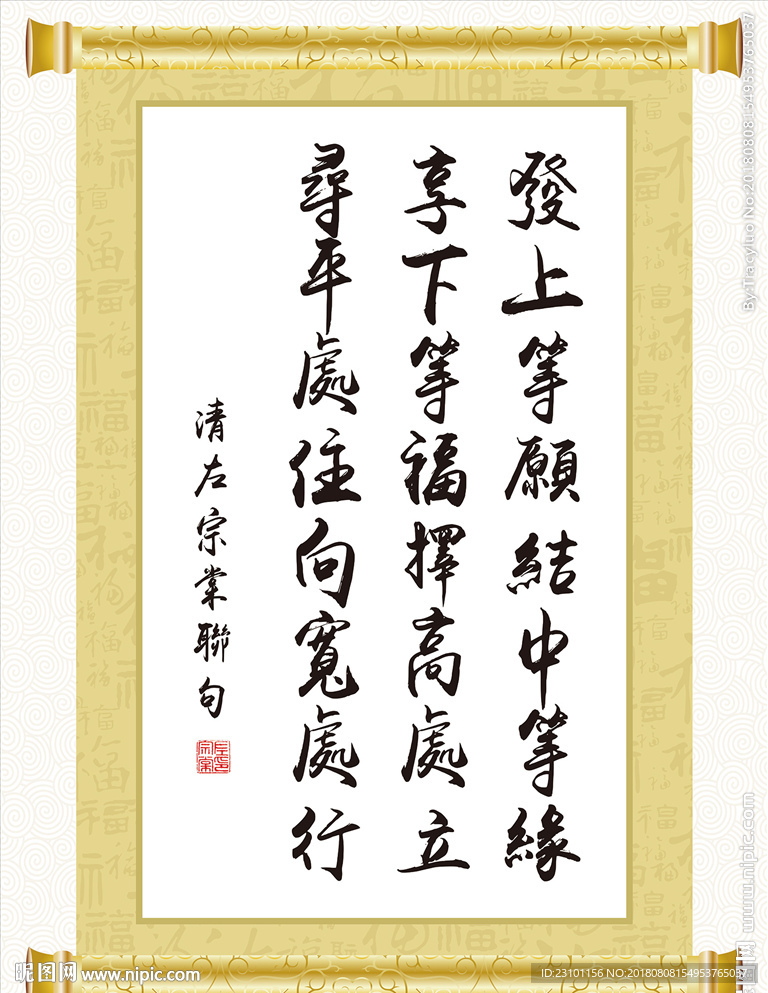 發上等願結中等緣
享下等福擇高處立
尋平處住向寬處行
清左宗棠聯句
By:Tracyluo No:20180808154953765037
www.nipic.com
昵图网 www.nipic.com
ID:23101156 NO:20180808154953765037